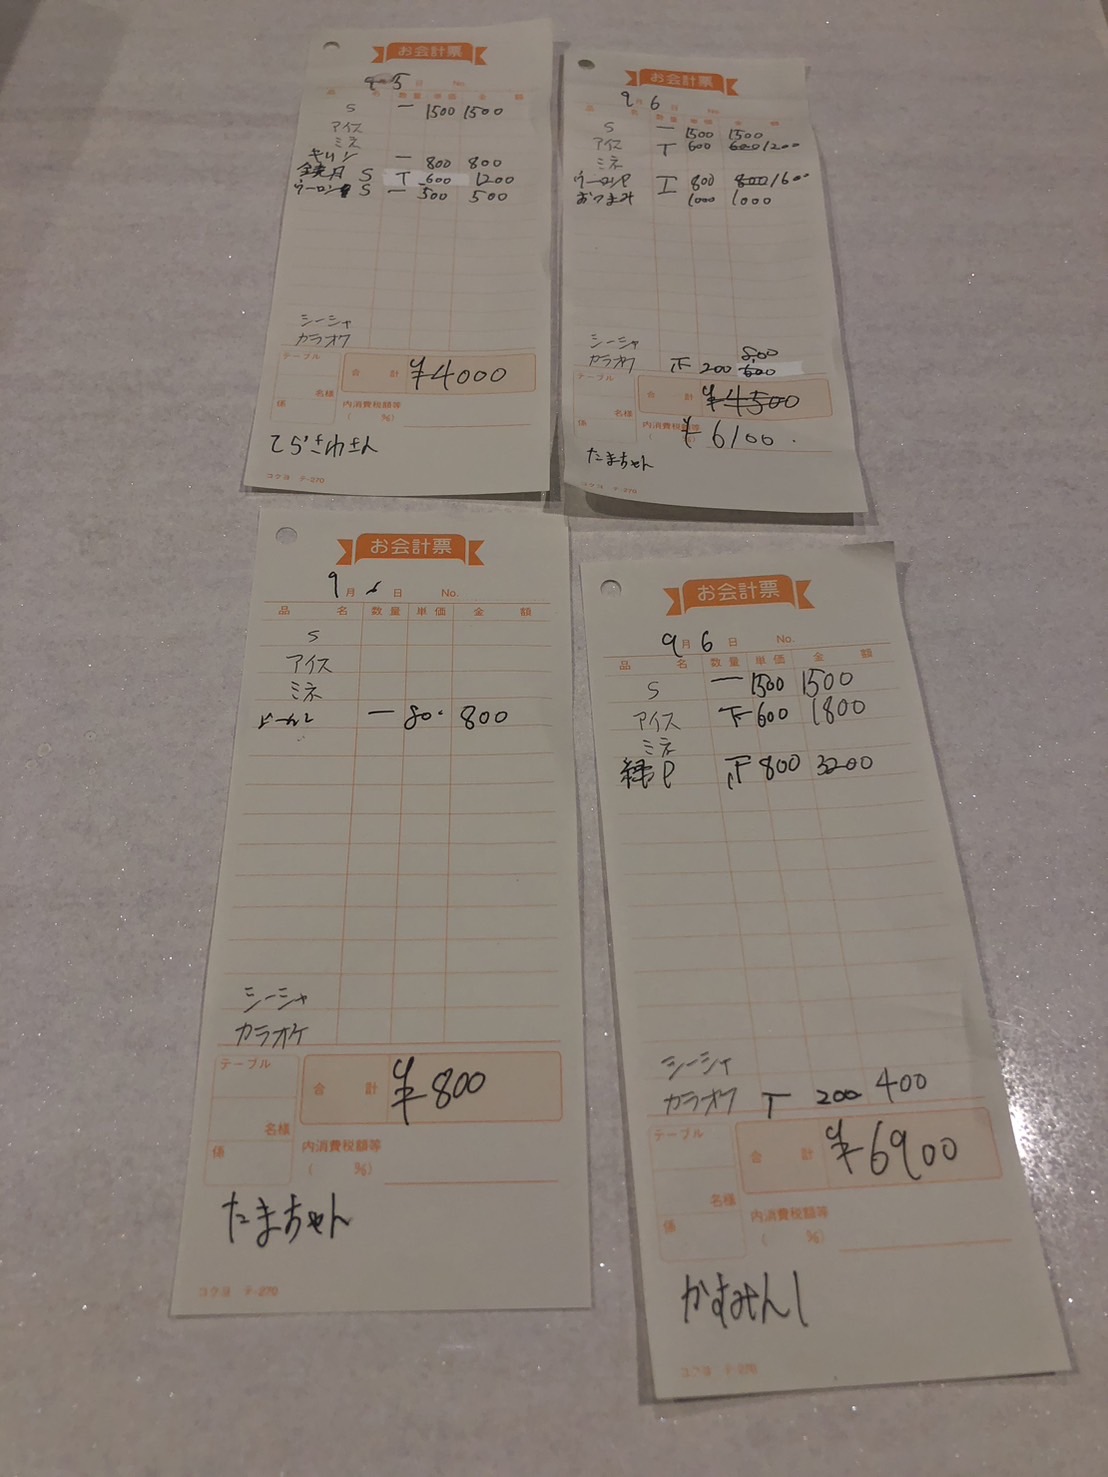 お会計票
9 5 日 No.
品 名 数量 単価 金 額
S 一 1500 1500
アイス
ミネ
キリン 一 800 800
鏡月 S T 600 1200
ウーロン S 一 500 500
シーシャ
カラオケ
テーブル
合 計 ¥4000
名様
係 内消費税額等
( %)
てらさわさん
コクヨ テ-270
お会計票
9月 6日 No.
品 名 数量 単価 金 額
S 一 1500 1500
アイス T 600 600 1200
ミネ
ウーロンP T 800 800 1600
おつまみ 1000 1000
シーシャ
800
カラオケ 200 600
テーブル
合 計 ¥4500
名様
係 内消費税額等
( %)
¥6100
たまちゃん
コクヨ テ-270
お会計票
9月 6日 No.
品 名 数量 単価 金 額
S
アイス
ミネ
ビール 一 80. 800
シーシャ
カラオケ
テーブル
合 計 ¥800
名様
係 内消費税額等
( %)
たまちゃん
コクヨ テ-270
お会計票
9月 6日 No.
品 名 数量 単価 金 額
S 一 1500 1500
アイス 下 600 1800
ミネ
緑P 800 3200
シーシャ
カラオケ T 200 400
テーブル
合 計 ¥6900
名様
係 内消費税額等
( %)
かすみんし
コクヨ テ-270